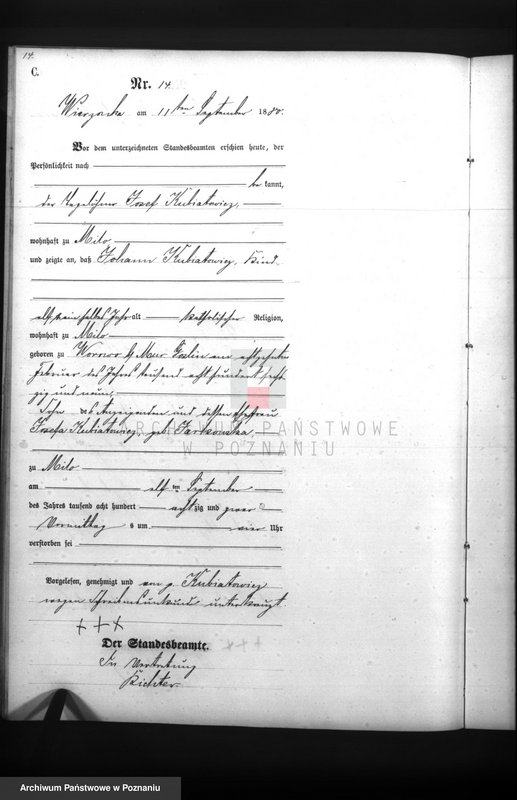 14.
C.
Nr. 14.
am 11ten September 1880.
Vor dem unterzeichneten Standesbeamten erschien heute, der
Persönlichkeit nach
be kannt,
der Tagelöhner Josef Kubiatowicz,
wohnhaft zu Milo
und zeigte an, daß Johann Kubiatowicz, Kind
elf ein halbes Jahr alt katholischer Religion,
wohnhaft zu Milo
geboren zu Mur Goslin am achtzehnten
Februar des Jahres tausend acht hundert sech
zig und neun,
Sohn des Anzeigenden und dessen Ehefrau
Josefa Kubiatowicz, geb.
zu Milo
am elf ten September
des Jahres tausend acht hundert acht zig und zwar
Vormittag s um vier Uhr
verstorben sei
Vorgelesen, genehmigt und von p. Kubiatowicz
wegen Schreibensunkunde unterkreuzt
+++
Der Standesbeamte.
In Vertretung
Richter
ARCHIWUM PAŃSTWOWE
W POZNANIU
Archiwum Państwowe w Poznaniu